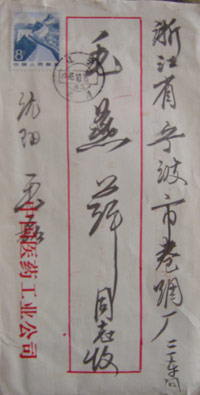 浙江省宁波市卷烟厂二车间
毛燕萍同志收
沈阳
中国医药工业公司
8
中国人民邮政